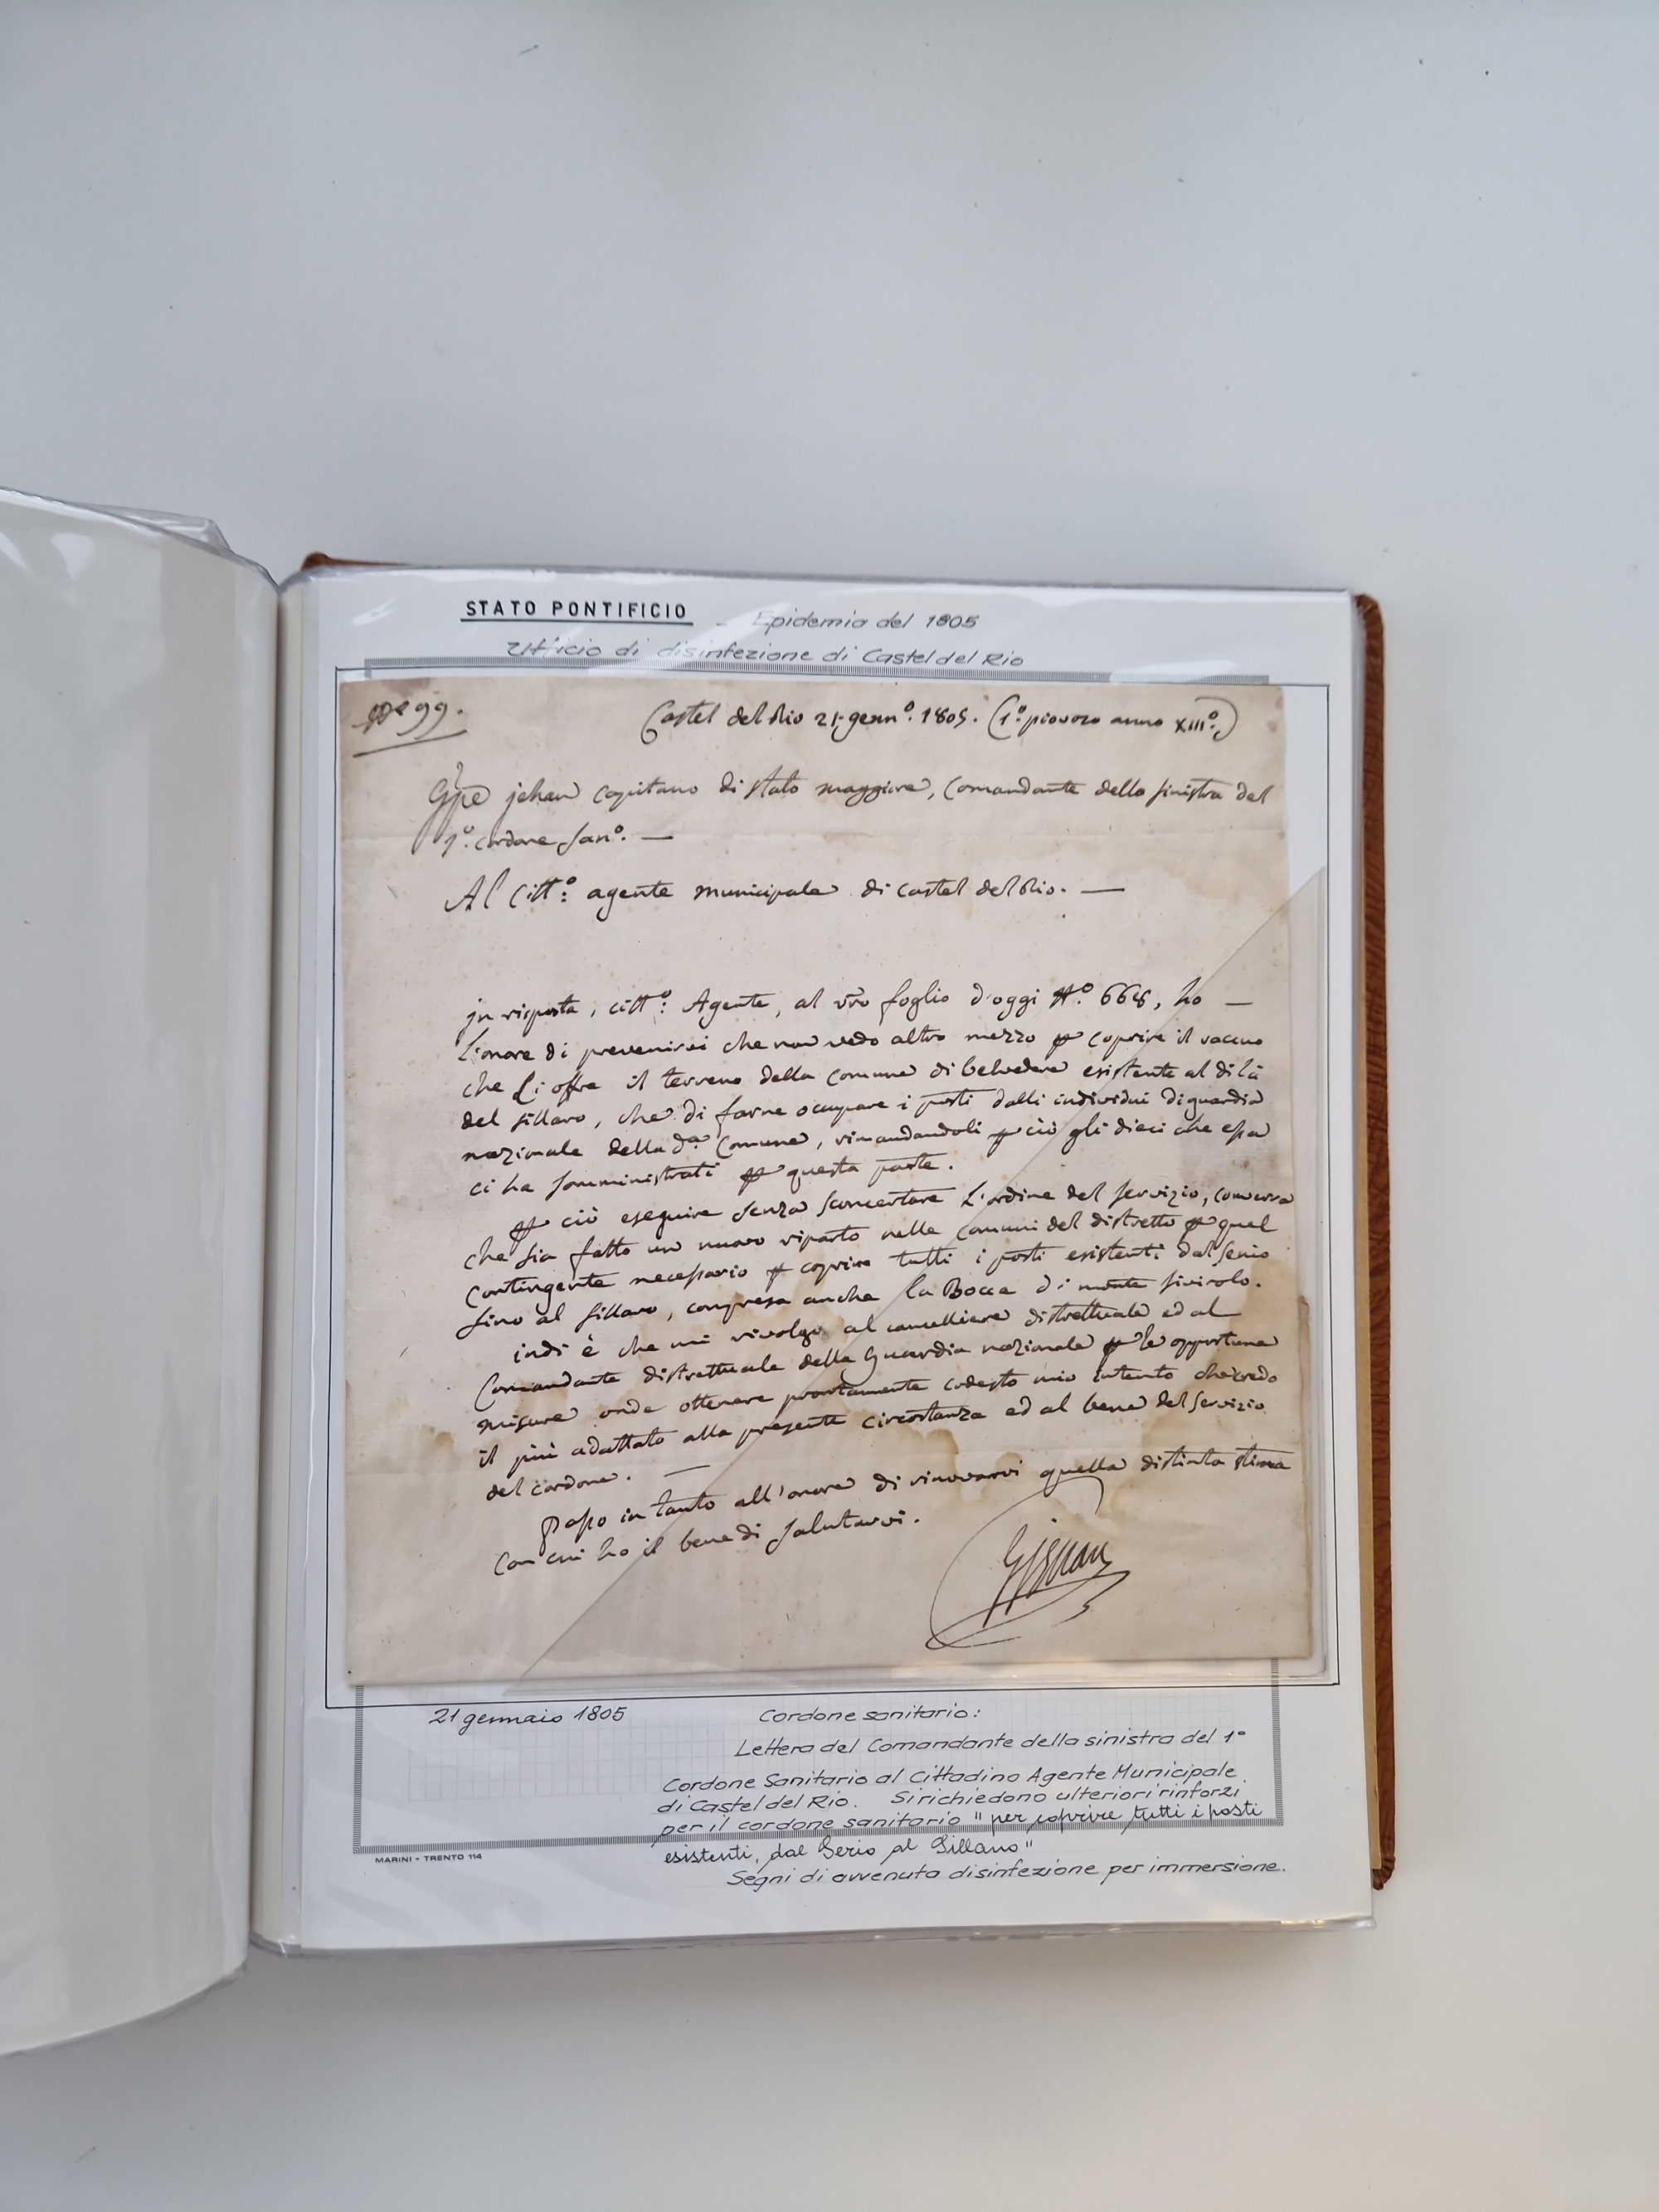 STATO PONTIFICIO - Epidemia del 1805
Ufficio di disinfezione di Castel del Rio
99.
Castel del Rio 21. genn.º 1805. (1.º piovoso anno XIII.º)
Gpe jehan capitano di stato maggiore, Comandante della sinistra del
1.º Cordone San.º —
Al Citt.º agente municipale di Castel del Rio. —
in risposta, citt.º Agente, al vro foglio d'oggi N.º 668, ho —
L'onore di prevenirvi che non vedo altro mezzo p coprire il vacuo
che Li offre il terreno della Comune di belvedere esistente al di là
del sillaro, che di farne occupare i posti dalli individui di guardia
nazionale della d.a Comune, rimandandoli p ciò gli dieci che essa
ci ha somministrati p questa parte.
p ciò eseguire senza sconcertare L'ordine del servizio, converrà
che sia fatto un nuovo riparto nelle comuni del distretto p quel
contingente necessario p coprire tutti i posti esistenti dal senio
sino al sillaro, compresa anche la Bocca di monte
indi è che mi rivolgo al cancelliere distrettuale ed al
Comandante distrettuale della Guardia nazionale p le opportune
misure onde ottenere prontamente codesto mio intento che credo
il più adattato alla presente circostanza ed al bene del servizio
del cordone. —
passo in tanto all'onore di rinovarvi quella distinta stima
con cui ho il bene di salutarvi.
21 gennaio 1805
Cordone sanitario:
Lettera del Comandante della sinistra del 1°
Cordone Sanitario al Cittadino Agente Municipale
di Castel del Rio. Si richiedono ulteriori rinforzi
per il cordone sanitario "per coprire tutti i posti
esistenti, dal Serio al Sillano"
Segni di avvenuta disinfezione per immersione.
MARINI - TRENTO 114